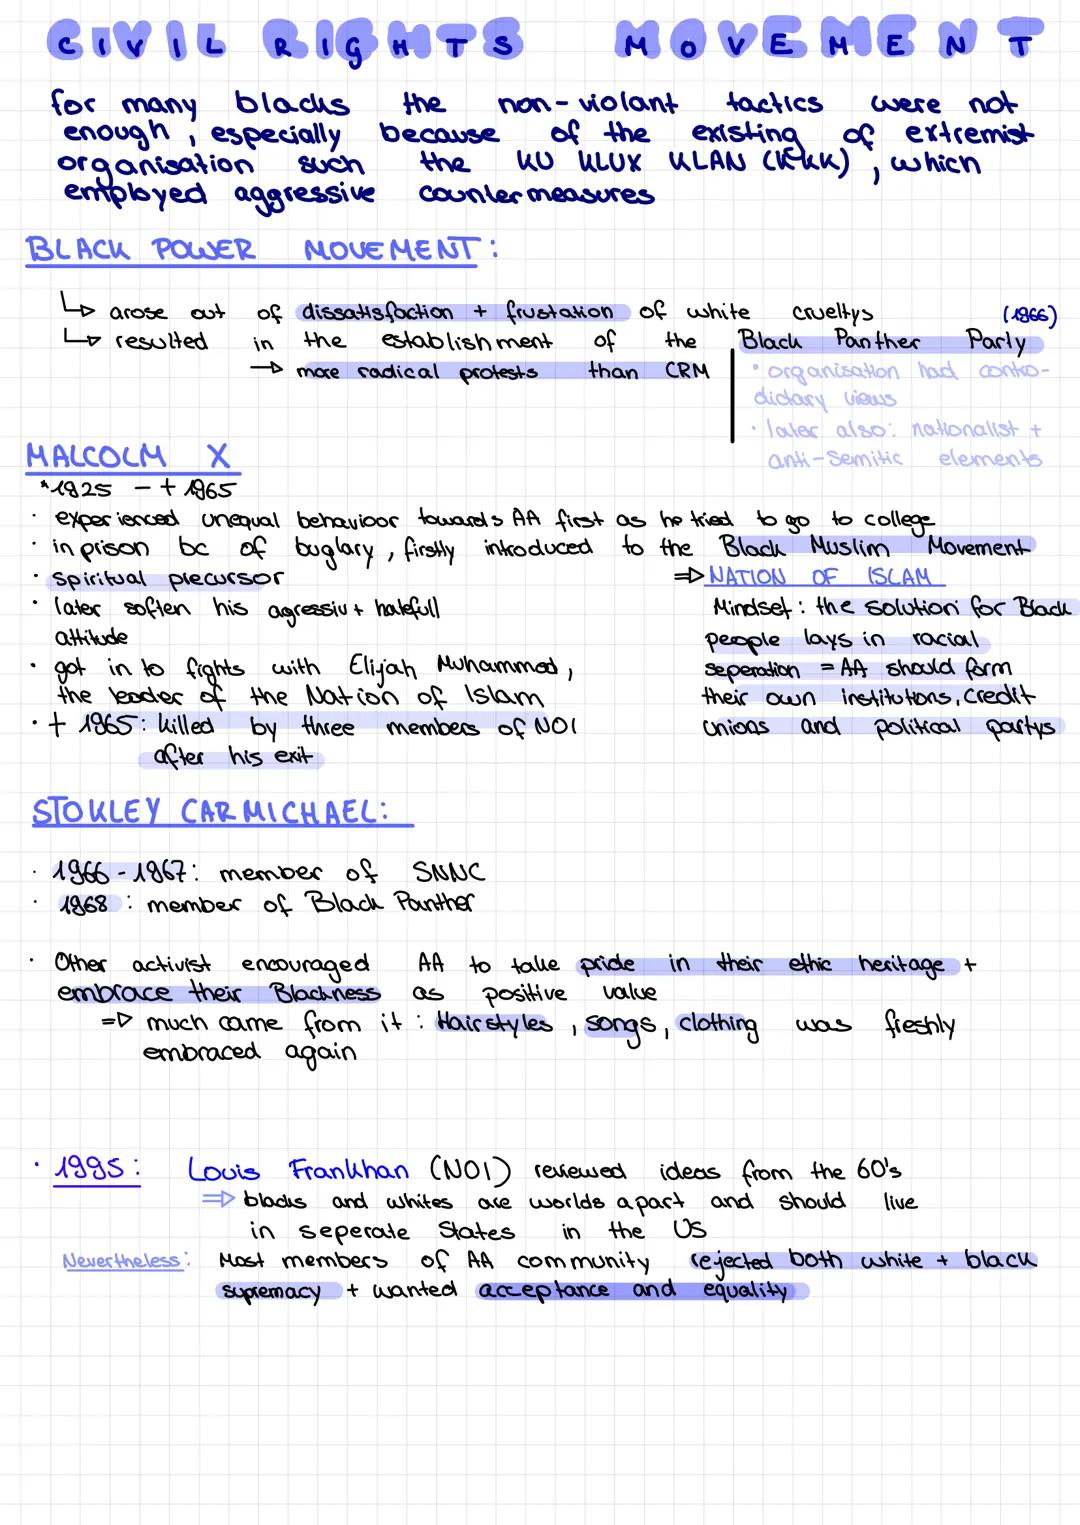 CIVIL RIGHTS MOVEMENT
for many blacks the non-violant tactics were not
enough, especially because of the existing of extremist
organisation such the KU KLUX KLAN (KKK), which
employed aggressive counter measures
BLACK POWER MOVEMENT:
↳ arose out of dissatisfaction + frustation of white crueltys (1966)
↳ resulted in the establishment of the Black Panther Party
→ more radical protests than CRM
• organisation had contra-
dictary views
• later also: nationalist +
anti-Semitic elements
MALCOLM X
*1925 - † 1965
· experienced unequal behavioor towards AA first as he tried to go to college
· in prison bc of buglary, firstly introduced to the Black Muslim Movement
· spiritual precursor
⇒ NATION OF ISLAM
· later soften his agressiv + hatefull
attitude
Mindset: the solution for Black
people lays in racial
seperation = AA should form
their own institutions, credit
unions and political partys
· got in to fights with Elijah Muhammed,
the leader of the Nation of Islam
· † 1965: killed by three members of NOI
after his exit
STOKLEY CARMICHAEL:
· 1966-1967: member of SNNC
· 1968: member of Black Panther
· Other activist encouraged AA to take pride in their ethic heritage +
embrace their Blackness as positive value
⇒ much came from it: Hairstyles, songs, clothing was freshly
embraced again
· 1995: Louis Frankhan (NOI) reviewed ideas from the 60's
⇒ blacks and whites are worlds apart and should live
in seperate States in the US
Nevertheless: Most members of AA community rejected both white + black
supremacy + wanted acceptance and equality